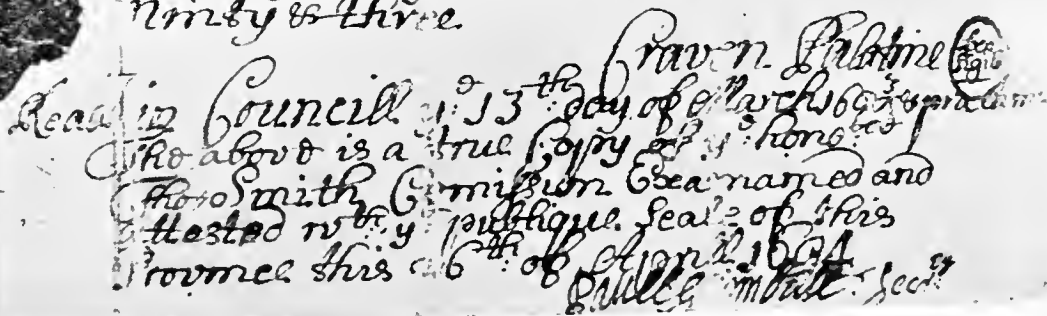 Ninety & three.
Craven Palatine
Read in Councill ye 13th day of March 169
The above is a true Copy of ye honoble
Tho: Smith Comission Exa: named and
attested wth ye publique Seale of this
Province this 6th of Aprill 1694
Secry